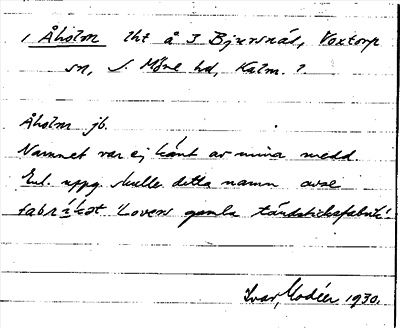 1 Åholm lht å 3 Bjursnäs, Voxtorp
sn, S. Möre hd, Kalm. l.
Åholm jb.
Namnet var ej känt av mina medd.
Enl. uppg. skulle detta namn avse
fabrik't Loven gamla tändsticksfabrik.
Ivar Modéer 1930.